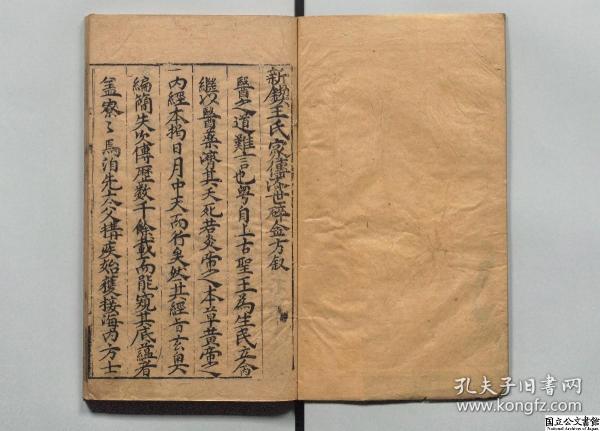 新鍥王氏家傳濟世碎金方叙
醫之道難言也粵自上古聖王為生民立命
繼以醫藥濟其夭死若炎帝之本草黄帝之
内經本揭日月中天而行矣然其經旨玄奥
編簡失次傳歴数千餘載而能窺其底蘊者
盖寥〻焉洎先大父搆疾始獲接海内方士
孔夫子旧书网
www.kongfz.com
国立公文書館
National Archives of Japan